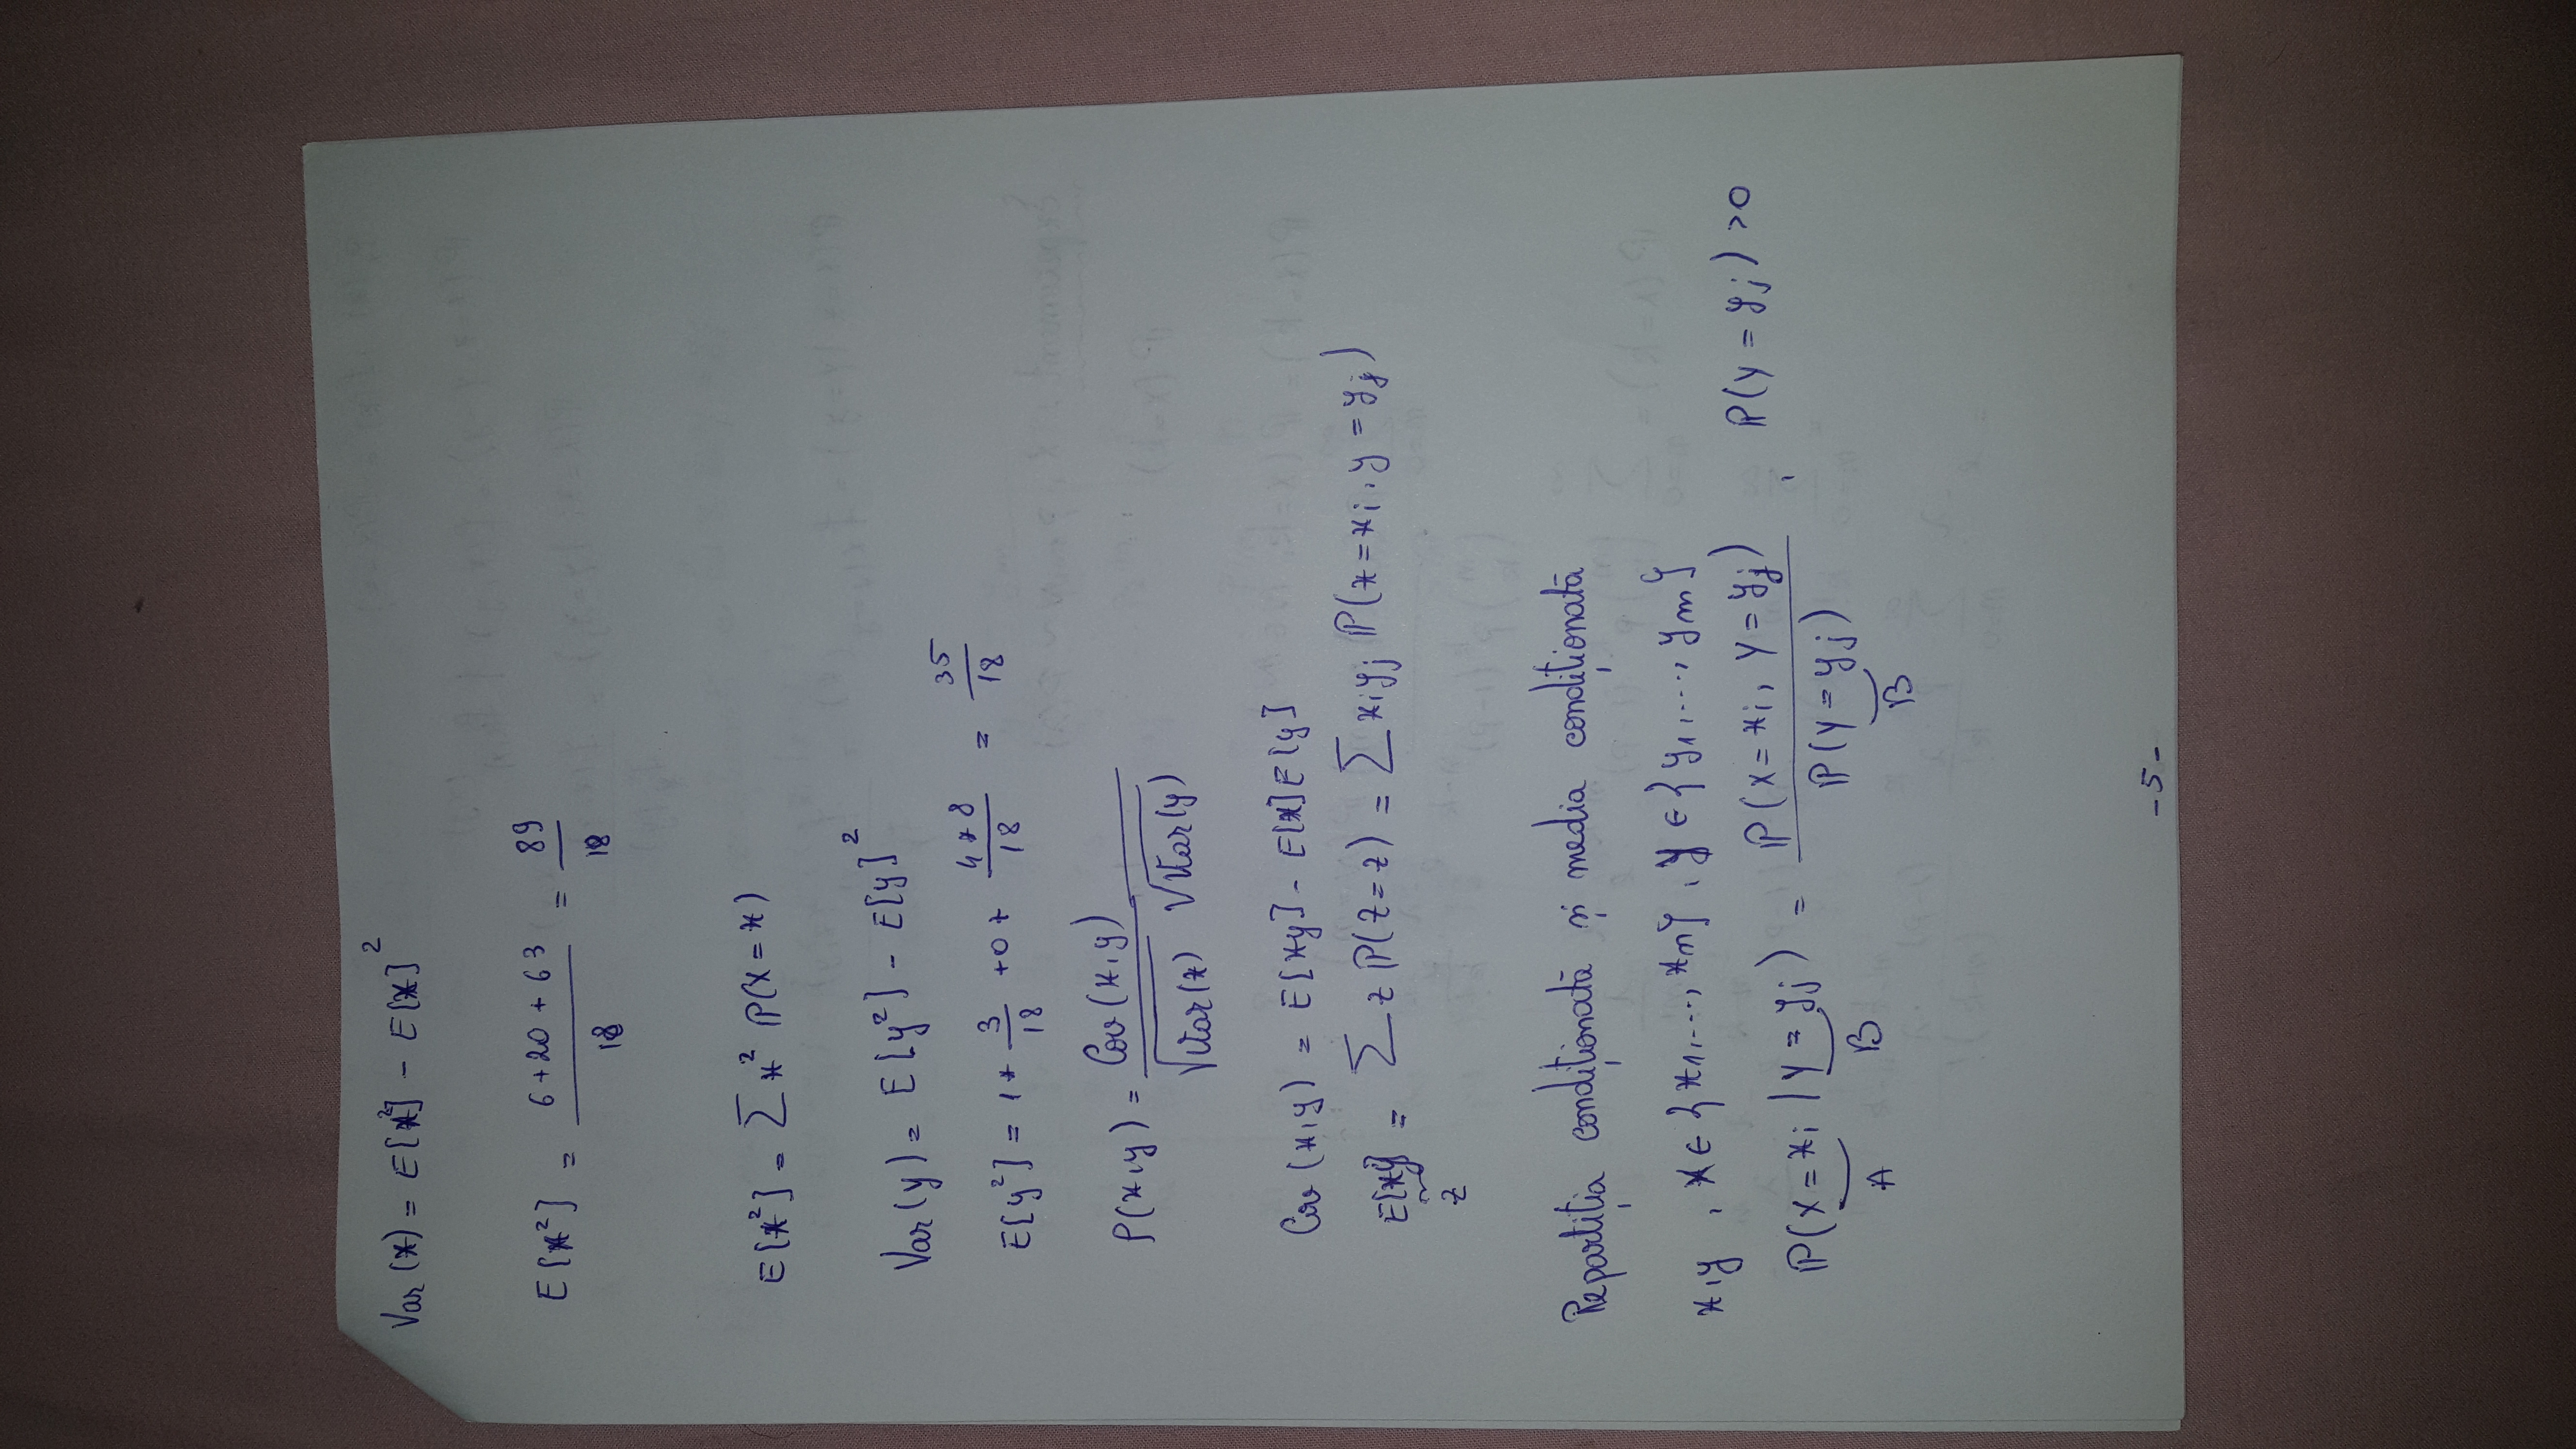 Var(x) = E[x²] - E[x]²
E[x²] = (6+20+63)/18 = 89/18
E[x²] = ∑ x² ℙ(X = x)
Var(y) = E[y²] - E[y]²
E[y²] = 1 * 3/18 + 0 + (4*8)/18 = 35/18
ρ(x,y) = Cov(x,y) / (√Var(x) √Var(y))
Cov(x,y) = E[xy] - E[x]E[y]
E[xy] = ∑ z ℙ(Z = z) = ∑ xᵢyⱼ ℙ(x = xᵢ, y = yⱼ)
z
Repartiția condiționată și media condiționată
x,y , X ∈ {x₁,..., xₙ} , y ∈ {y₁,..., yₘ}
ℙ(X = xᵢ | Y = yⱼ) = ℙ(X = xᵢ, Y = yⱼ) / ℙ(Y = yⱼ) , ℙ(Y = yⱼ) > 0
A B B
- 5 -